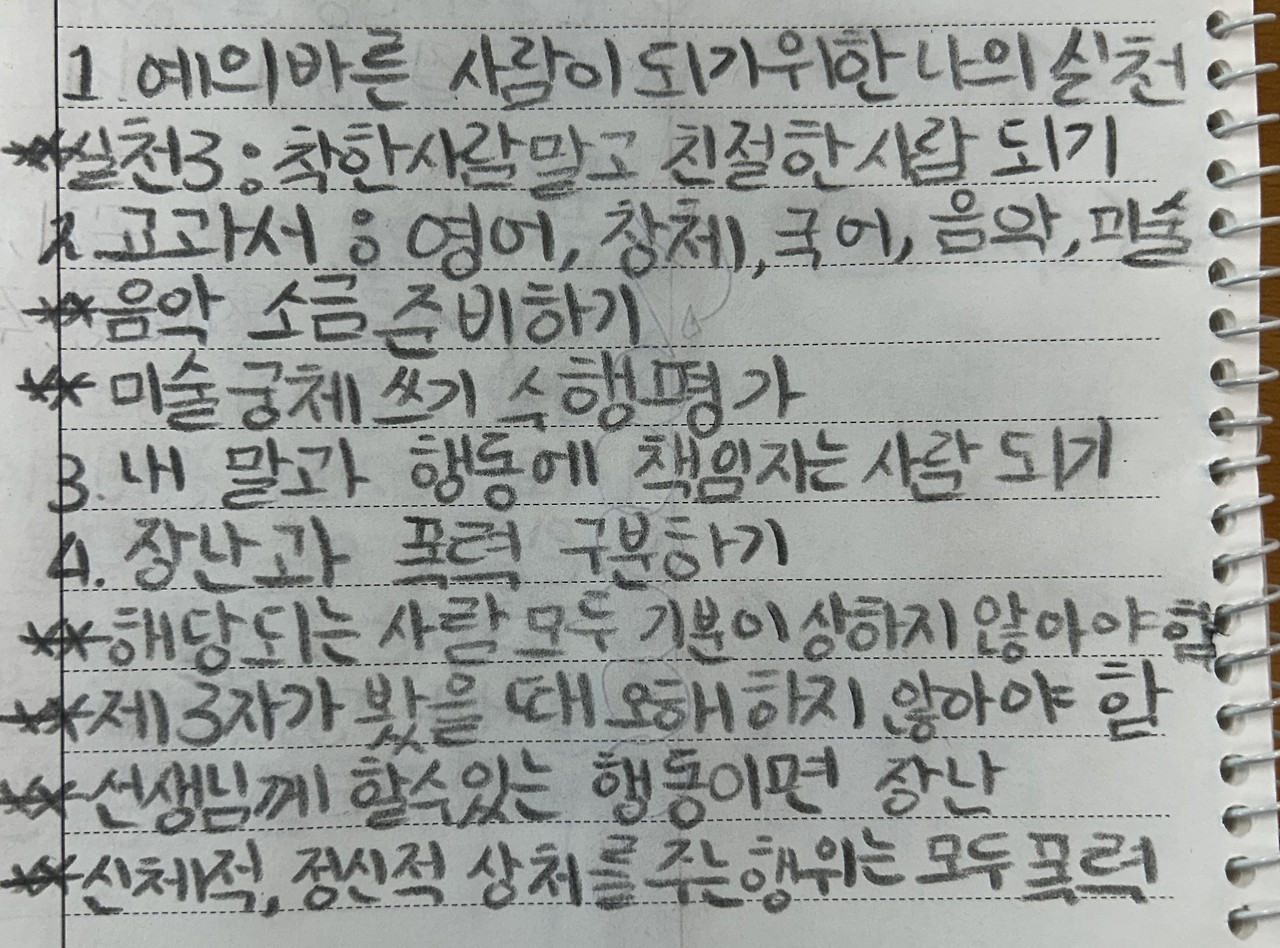 1. 예의바른 사람이 되기위한 나의 실천
** 실천3 : 착한사람말고 친절한 사람 되기
2. 교과서 : 영어, 창체, 국어, 음악, 미술
** 음악 소금 준비하기
** 미술 궁체 쓰기 수행평가
3. 내 말과 행동에 책임지는 사람 되기
4. 장난과 폭력 구분하기
** 해당되는 사람 모두 기분이 상하지 않아야 함
** 제 3자가 봤을 때 오해하지 않아야 함
** 선생님께 할수있는 행동이면 장난
** 신체적, 정신적 상처를 주는 행위는 모두 폭력